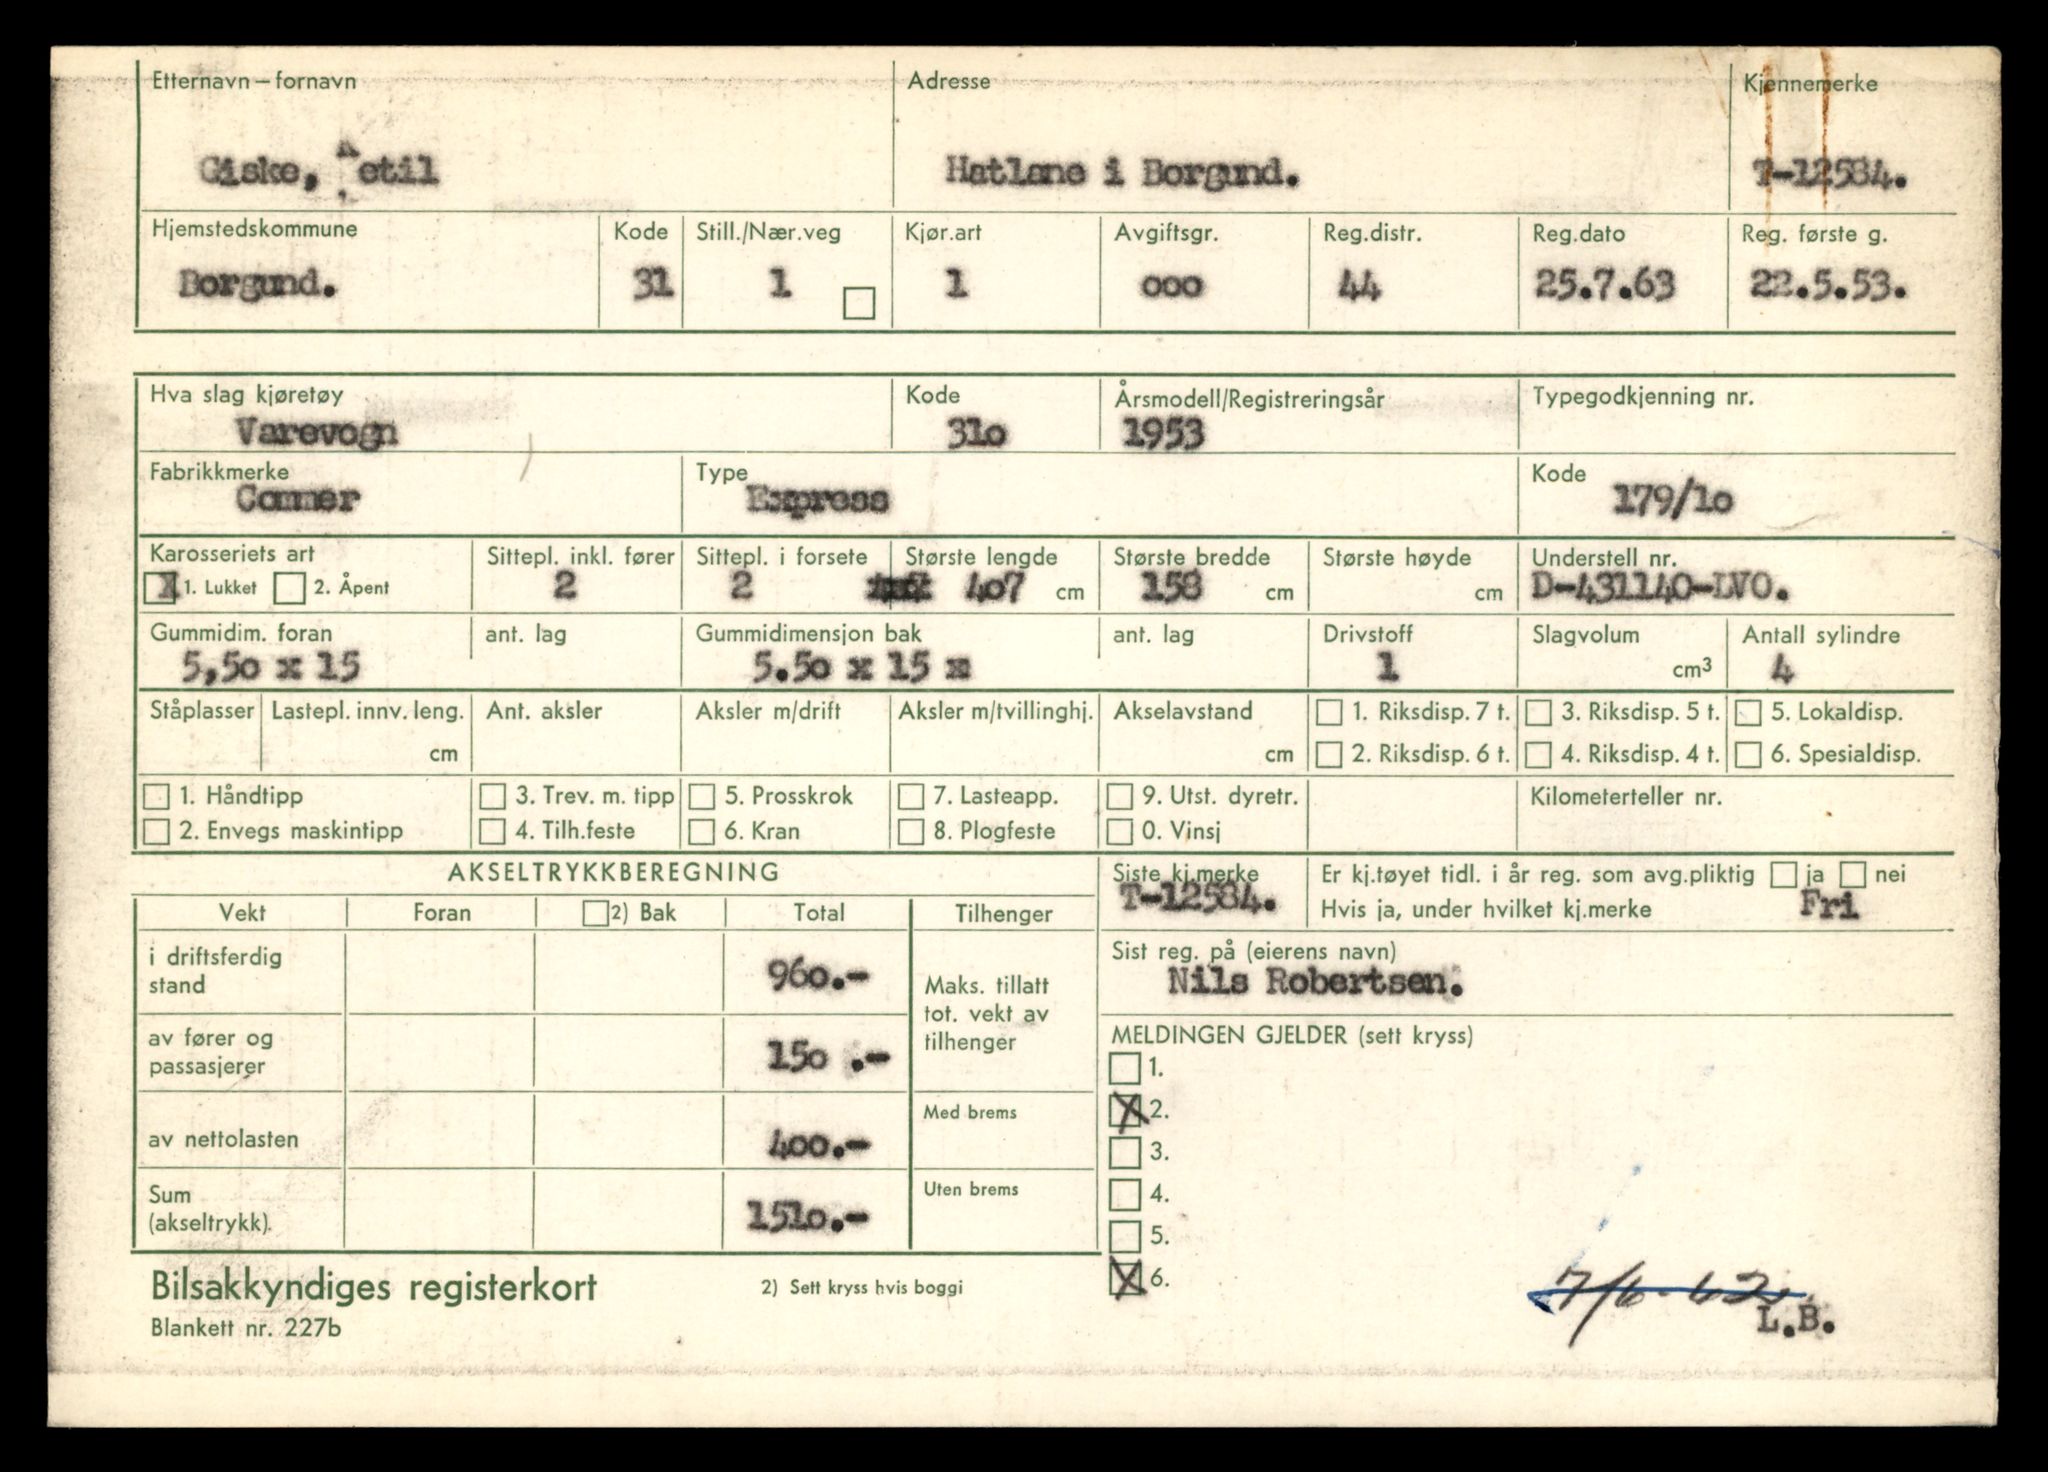 Etternavn – fornavn Adresse Kjennemerke
Giske, Ketil Hatlane i Borgund. T-12584.
Hjemstedskommune Kode Still./Nær.veg Kjør.art Avgiftsgr. Reg.distr. Reg.dato Reg. første g.
Borgund. 31 1 1 ooo 44 25.7.63 22.5.53.
Hva slag kjøretøy Kode Årsmodell/Registreringsår Typegodkjenning nr.
Varevogn 31o 1953
Fabrikkmerke Type Kode
Commer Express 179/1o
Karosseriets art Sittepl. inkl. fører Sittepl. i forsete Største lengde Største bredde Største høyde Understell nr.
X 1. Lukket 2. Åpent 2 2 4o7 cm 158 cm cm D-431140-LVO.
Gummidim. foran ant. lag Gummidimensjon bak ant. lag Drivstoff Slagvolum Antall sylindre
5,5o x 15 5.5o x 15 x 1 cm3 4
Ståplasser Lastepl. innv. leng. Ant. aksler Aksler m/drift Aksler m/tvillinghj. Akselavstand 1. Riksdisp. 7 t. 3. Riksdisp. 5 t. 5. Lokaldisp.
cm cm 2. Riksdisp. 6 t. 4. Riksdisp. 4 t. 6. Spesialdisp.
1. Håndtipp 3. Trev. m. tipp 5. Prosskrok 7. Lasteapp. 9. Utst. dyretr. Kilometerteller nr.
2. Envegs maskintipp 4. Tilh.feste 6. Kran 8. Plogfeste 0. Vinsj
AKSELTRYKKBEREGNING Siste kj.merke Er kj.tøyet tidl. i år reg. som avg.pliktig ja nei
T-12584. Hvis ja, under hvilket kj.merke Fri
Vekt Foran 2) Bak Total Tilhenger
i driftsferdig stand 960.-
Sist reg. på (eierens navn)
Nils Robertsen.
Maks. tillatt
tot. vekt av
tilhenger
av fører og
passasjerer 150 .-
MELDINGEN GJELDER (sett kryss)
1.
X 2.
3.
4.
5.
X 6.
Med brems
av nettolasten 4oo.-
Uten brems
Sum
(akseltrykk). 151o.-
7/6-62
L.B.
Bilsakkyndiges registerkort 2) Sett kryss hvis boggi
Blankett nr. 227b